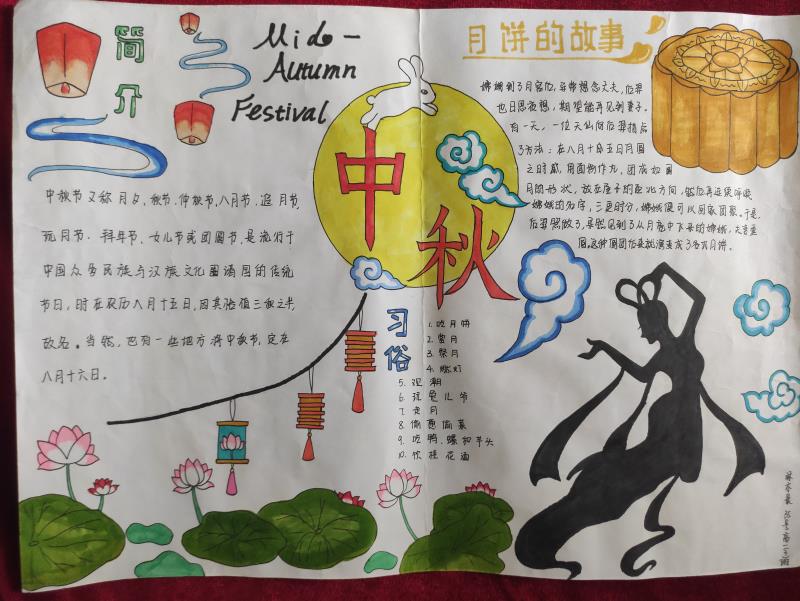 简介
中秋节又称月夕、秋节、仲秋节、八月节、追月节、
玩月节、拜月节、女儿节或团圆节,是流行于
中国众多民族与汉族文化圈诸国的传统
节日,时在农历八月十五日,因其恰值三秋之半,
故名。当然,也有一些地方将中秋节,定在
八月十六日。
Mid-
Autumn
Festival
中秋
习俗
1. 吃月饼
2. 赏月
3. 祭月
4. 燃灯
5. 观潮
6. 玩兔儿爷
7. 走月
8. 偷葱偷菜
9. 吃鸭、螺和芋头
10. 饮桂花酒
月饼的故事
嫦娥到了月宫后,异常想念丈夫,后羿
也日思夜想,期望能再见到妻子。
有一天,一位天仙向后羿指点
了方法:在八月十五日月圆
之时辰,用面粉作丸,团成如圆
月的形状,放在屋子的西北方向,然后再连续呼唤
嫦娥的名字,三更时分,嫦娥便可以回家团聚。于是,
后羿照做了,果然见到了从月亮中下来的嫦娥,夫妻重
圆,这种圆团后来就演变成了今天月饼。